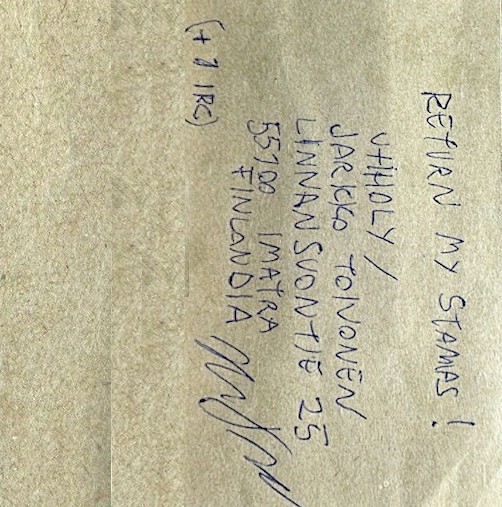 RETURN MY STAMPS!
UNHOLY /
JARKKO TOIVONEN
LINNANSUONTIE 25
55100 IMATRA
FINLANDIA
(+ 1 IRC)